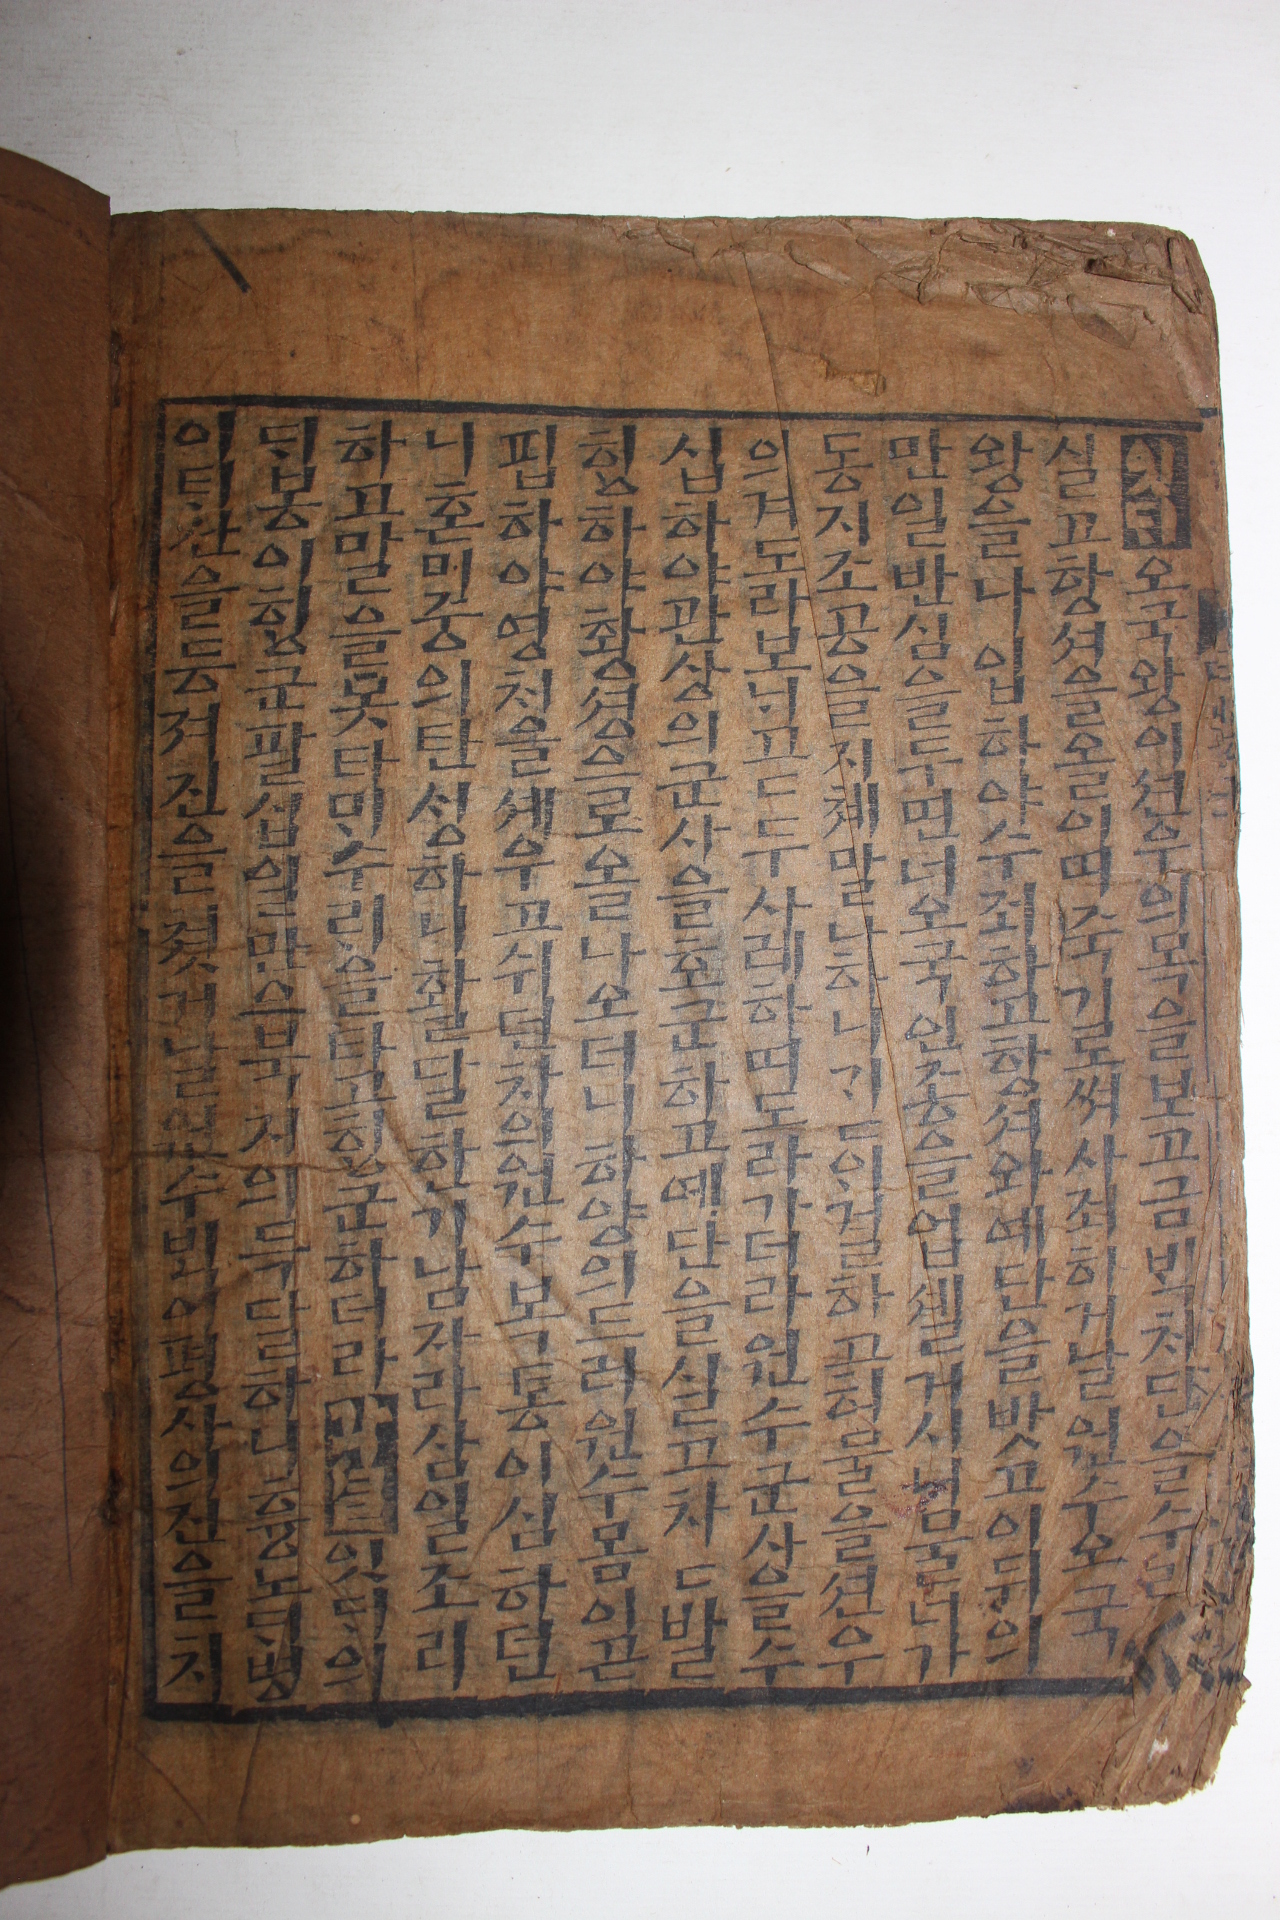 오국왕이션우의목을보고금빅치단을수릐
실고항셔을올이며죽기로써사죄하거날원수오국
왕을나입하야수죄하고항셔와예단을밧고이뒤의
만일반심을두면너오국인종을업셀거시니물너가
동지조공을지체말나하니기 듸걸하고허물을션우
의겨도라보닉고ᄃᄃ두사례하며도라가더라원수군사을수
십하야관상의군사을호군하고예단을실고차ᄃ발
힝하야황셩으로올나오더니하양의드러원수몸이곤
핍하야영치을셰우고쉬던차의원수보국동이심하던
니혼미중의탄성하니활달한기남자라삼일조리
하고말을못타믹수릭을타고힝군하더라각셜잇딕의
딕봉이힝군팔십일만으북지의득달하니흉노딕병
이틱산을등져진을쳣거날원수빅이평사의진을치